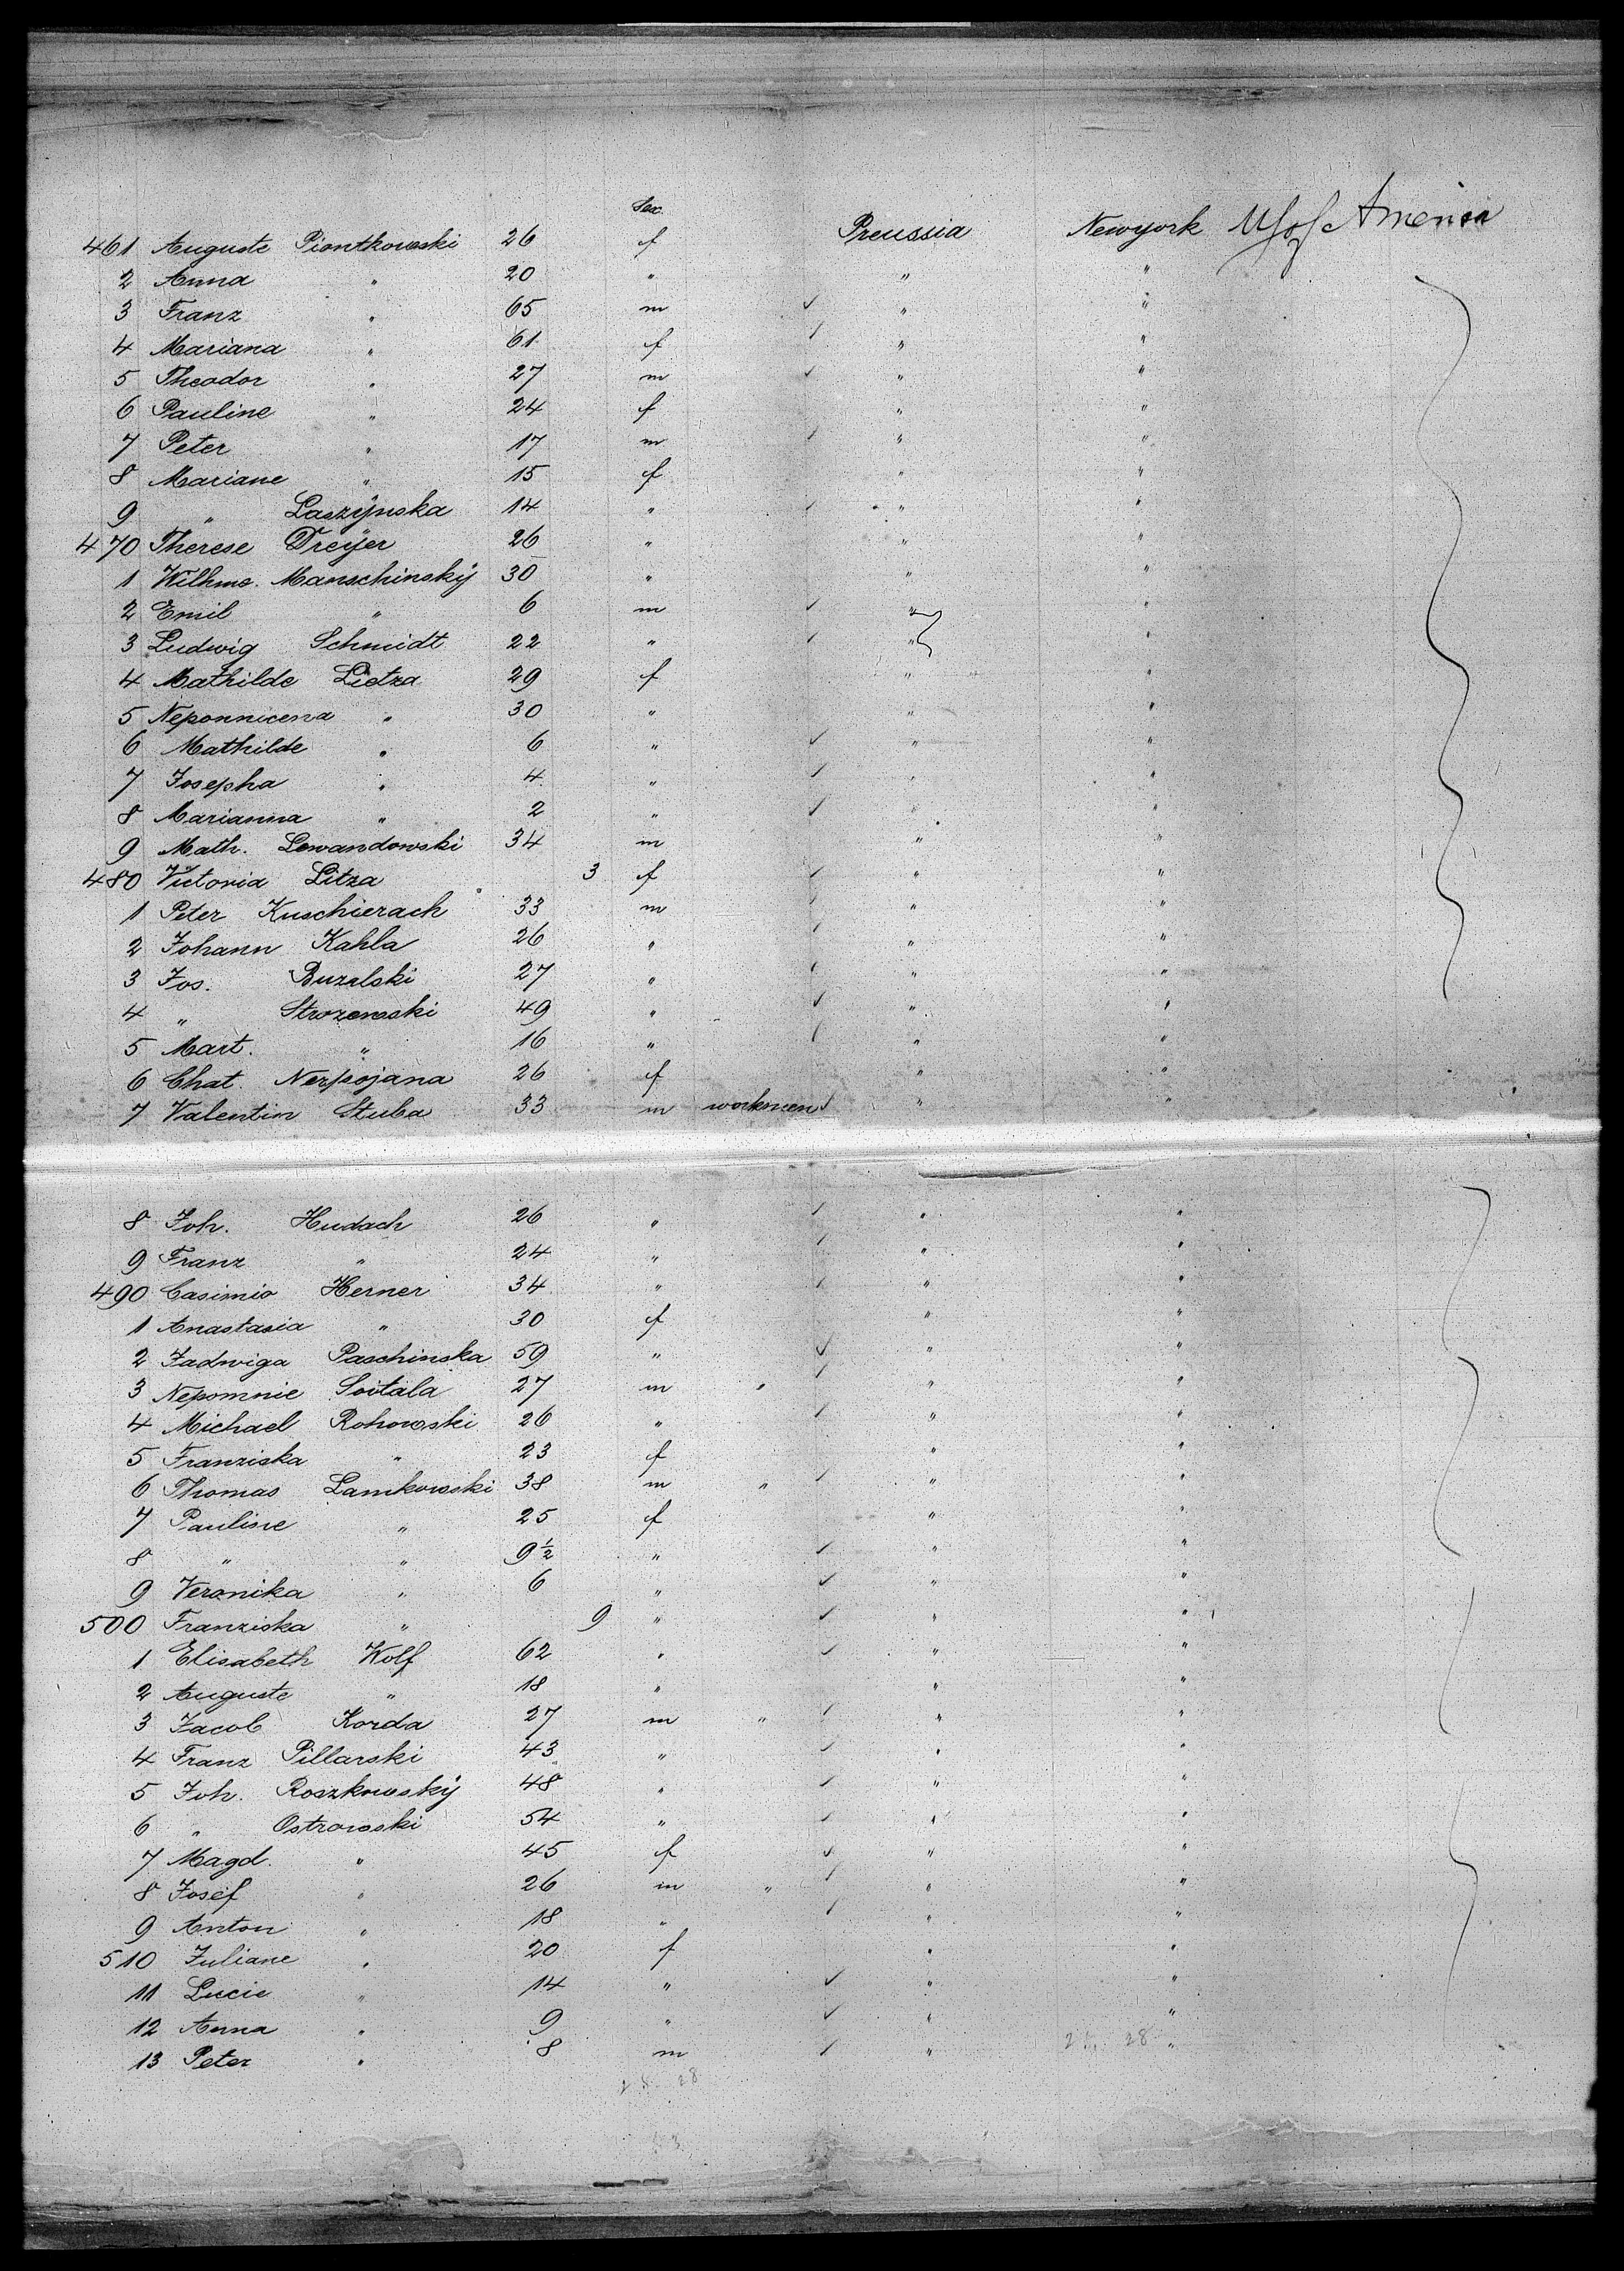 Sex
461 Auguste Piontkowski 26 f Preussia Newyork U S of America
2 Anna " 20 " " "
3 Franz " 65 m ✓ " "
4 Mariana " 61 f ✓ " "
5 Theodor " 27 m ✓ " "
6 Pauline " 24 f " "
7 Peter " 17 m ✓ " "
8 Mariane " 15 f " "
9 " Laszÿnska 14 " ✓ " "
470 Therese Dreÿer 26 " " "
1 Wilhme. Manschinskÿ 30 " " "
2 Emil " 6 m ✓ " "
3 Ludwig Schmidt 22 " ✓ " "
4 Mathilde Lietza 29 f " "
5 Neponnicena " 30 " " "
6 Mathilde " 6 " ✓ " "
7 Josepha " 4 " ✓ " "
8 Marianna " 2 " ✓ " "
9 Math. Lewandowski 34 m " "
480 Victoria Litza 3 f ✓ " "
1 Peter Kuschierach 33 m ✓ " "
2 Johann Kahla 26 " ✓ " "
3 Jos. Buzalski 27 " ✓ " "
4 " Strozewski 49 " ✓ " "
5 Mart. " 16 " ✓ " "
6 Chat. Nezpojana 26 f " "
7 Valentin Stuba 33 m workmen ✓ " "
8 Joh. Hudach 26 " ✓ " "
9 Franz " 24 " ✓ " "
490 Casimir Herner 34 " ✓ " "
1 Anastasia " 30 f " "
2 Jadwiga Paschinska 59 " ✓ " "
3 Nepomnie Soitala 27 m " ✓ " "
4 Michael Rohowski 26 " ✓ " "
5 Franziska " 23 f " "
6 Thomas Lamkowski 38 m " ✓ " "
7 Pauline " 25 f " "
8 " " 9½ " ✓ " "
9 Veronika " 6 " ✓ " "
500 Franziska " 9 " ✓ " "
1 Elisabeth Wolf 62 " ✓ " "
2 Auguste " 18 " " "
3 Jacob Korda 27 m " ✓ " "
4 Franz Pillarski 43 " ✓ " "
5 Joh. Roszkowskÿ 48 " ✓ " "
6 " Ostrowski 54 " ✓ " "
7 Magd. " 45 f ✓ " "
8 Josef " 26 m " ✓ " "
9 Anton " 18 " ✓ " "
510 Juliane " 20 f " "
11 Lucie " 14 " ✓ " "
12 Anna " 9 " ✓ " "
13 Peter " 8 m ✓ " "